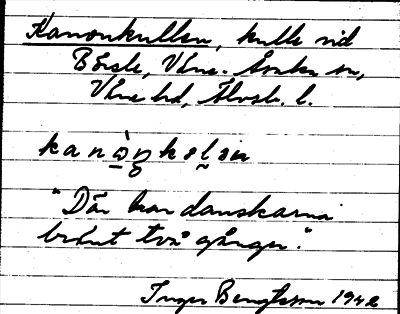 Kanonkullen, kulle vid
Börsle, Väne-Åsaka sn,
Väne hd, Älvsb. l.
kanòŋkəlan
"Där har danskarna
bränt två gånger."
Inger Bengtsson 1942